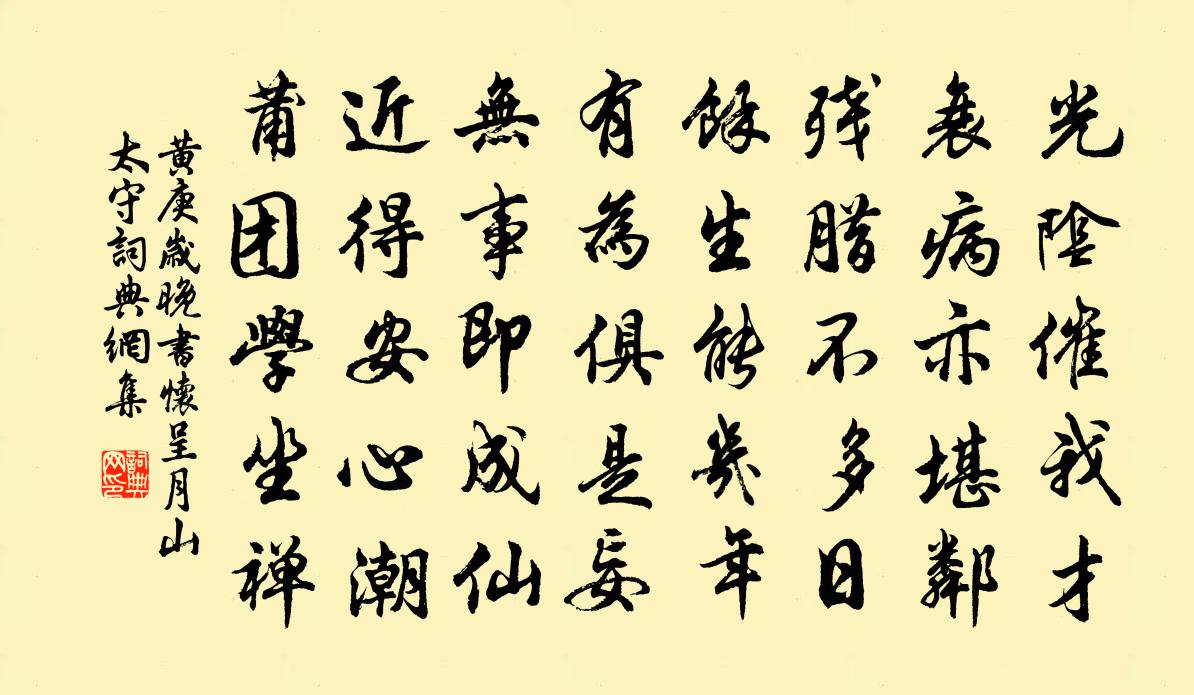 光陰催我才
衰病亦堪鄰
残腊不多日
餘生能幾年
有為俱是妄
無事即成仙
近得安心潮
莆团學坐禅
黄庚歲晚書懷呈月山
太守詞典網集
詞典网印